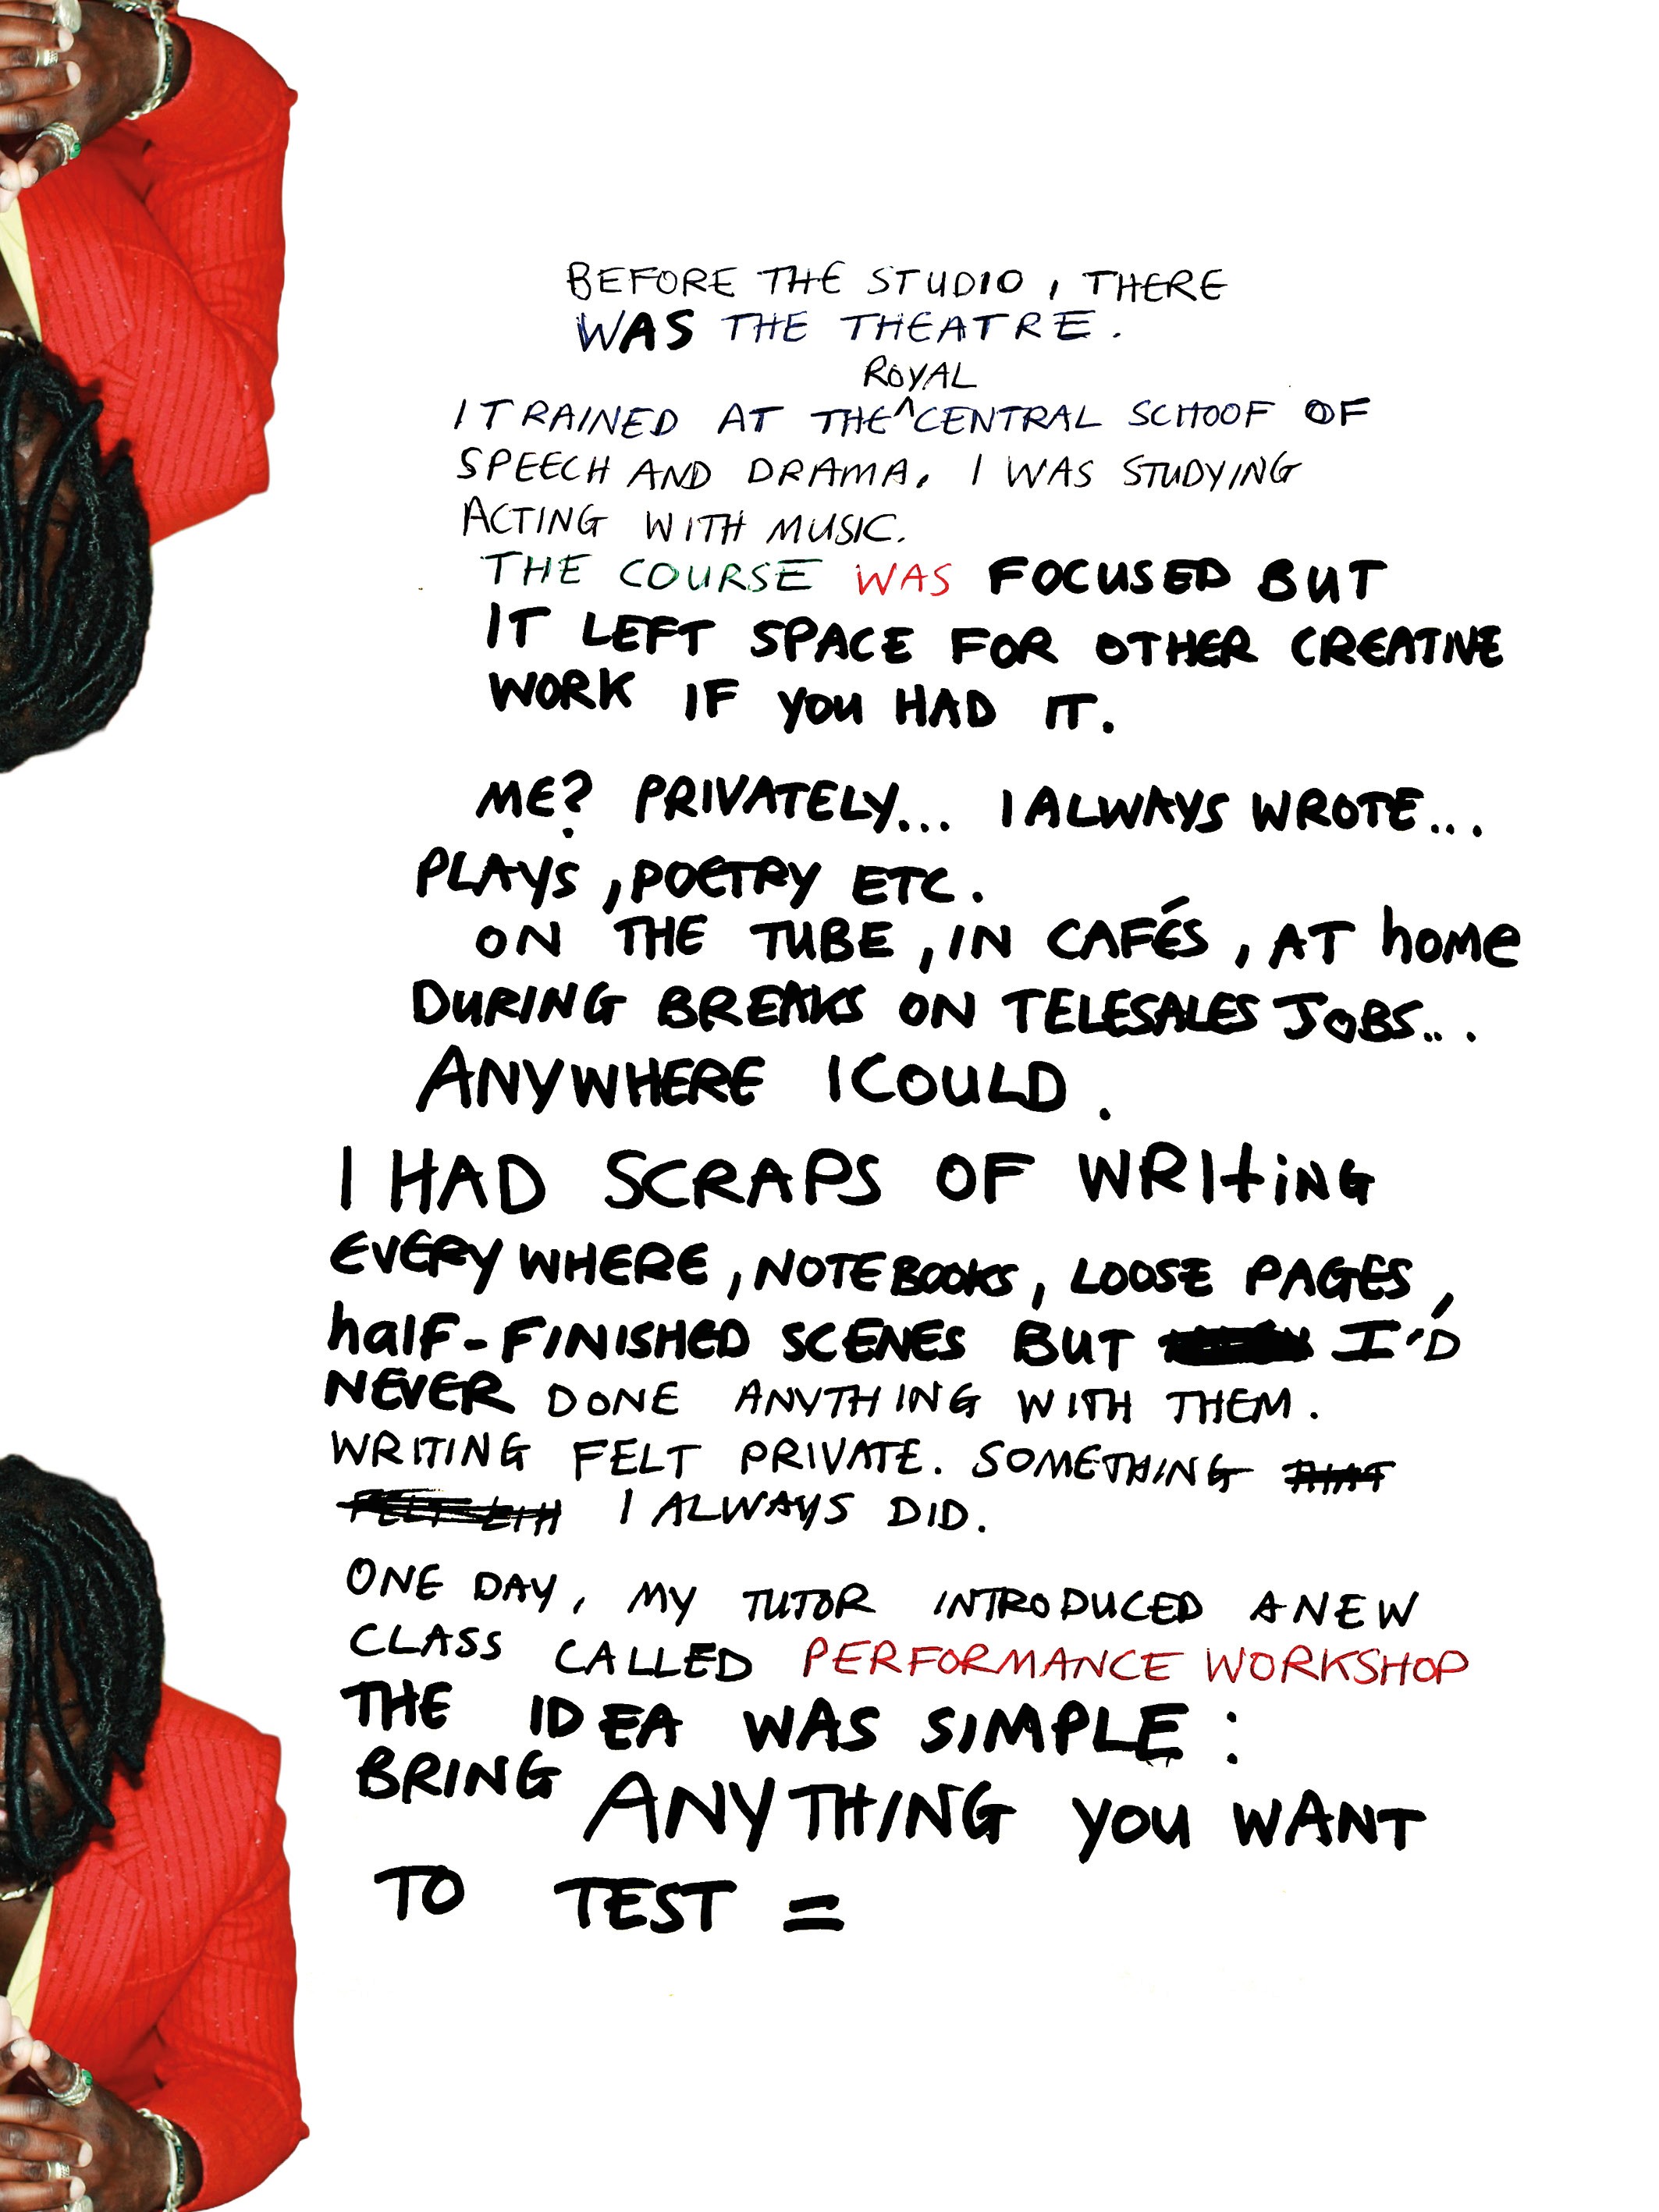 BEFORE THE STUDIO, THERE
WAS THE THEATRE.
ROYAL
I TRAINED AT THE^CENTRAL SCHOOF OF
SPEECH AND DRAMA. I WAS STUDYING
ACTING WITH MUSIC.
THE COURSE WAS FOCUSED BUT
IT LEFT SPACE FOR OTHER CREATIVE
WORK IF YOU HAD IT.
ME? PRIVATELY... I ALWAYS WROTE...
PLAYS, POETRY ETC.
ON THE TUBE, IN CAFÉS, AT home
DURING BREAKS ON TELESALES JOBS...
ANYWHERE I COULD.
I HAD SCRAPS OF WRITING
EVERYWHERE, NOTEBOOKS, LOOSE PAGES,
half-FINISHED SCENES BUT I'D
NEVER DONE ANYTHING WITH THEM.
WRITING FELT PRIVATE. SOMETHING
I ALWAYS DID.
ONE DAY, MY TUTOR INTRODUCED A NEW
CLASS CALLED PERFORMANCE WORKSHOP
THE IDEA WAS SIMPLE:
BRING ANYTHING YOU WANT
TO TEST =